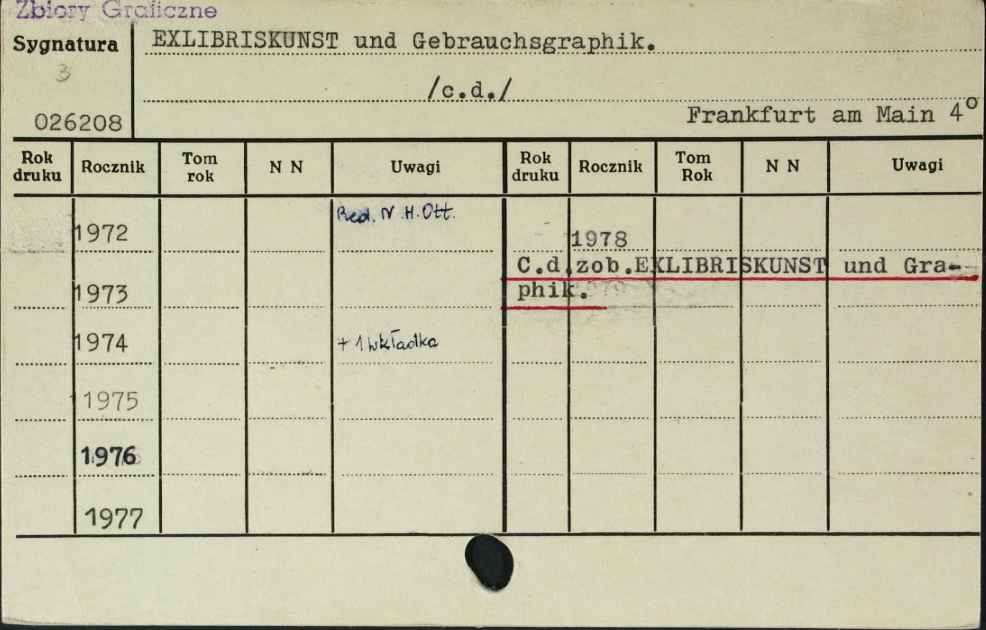 Zbiory Graficzne
Sygnatura EXLIBRISKUNST und Gebrauchsgraphik.
3
/c.d./
026208 Frankfurt am Main 4°
Rok druku Rocznik Tom rok N N Uwagi Rok druku Rocznik Tom Rok N N Uwagi
1972 Red. N. H. Ott. 1978
C.d.zob.EXLIBRISKUNST und Gra-
1973 phik.
1974 + 1 wkładka
1975
1976
1977